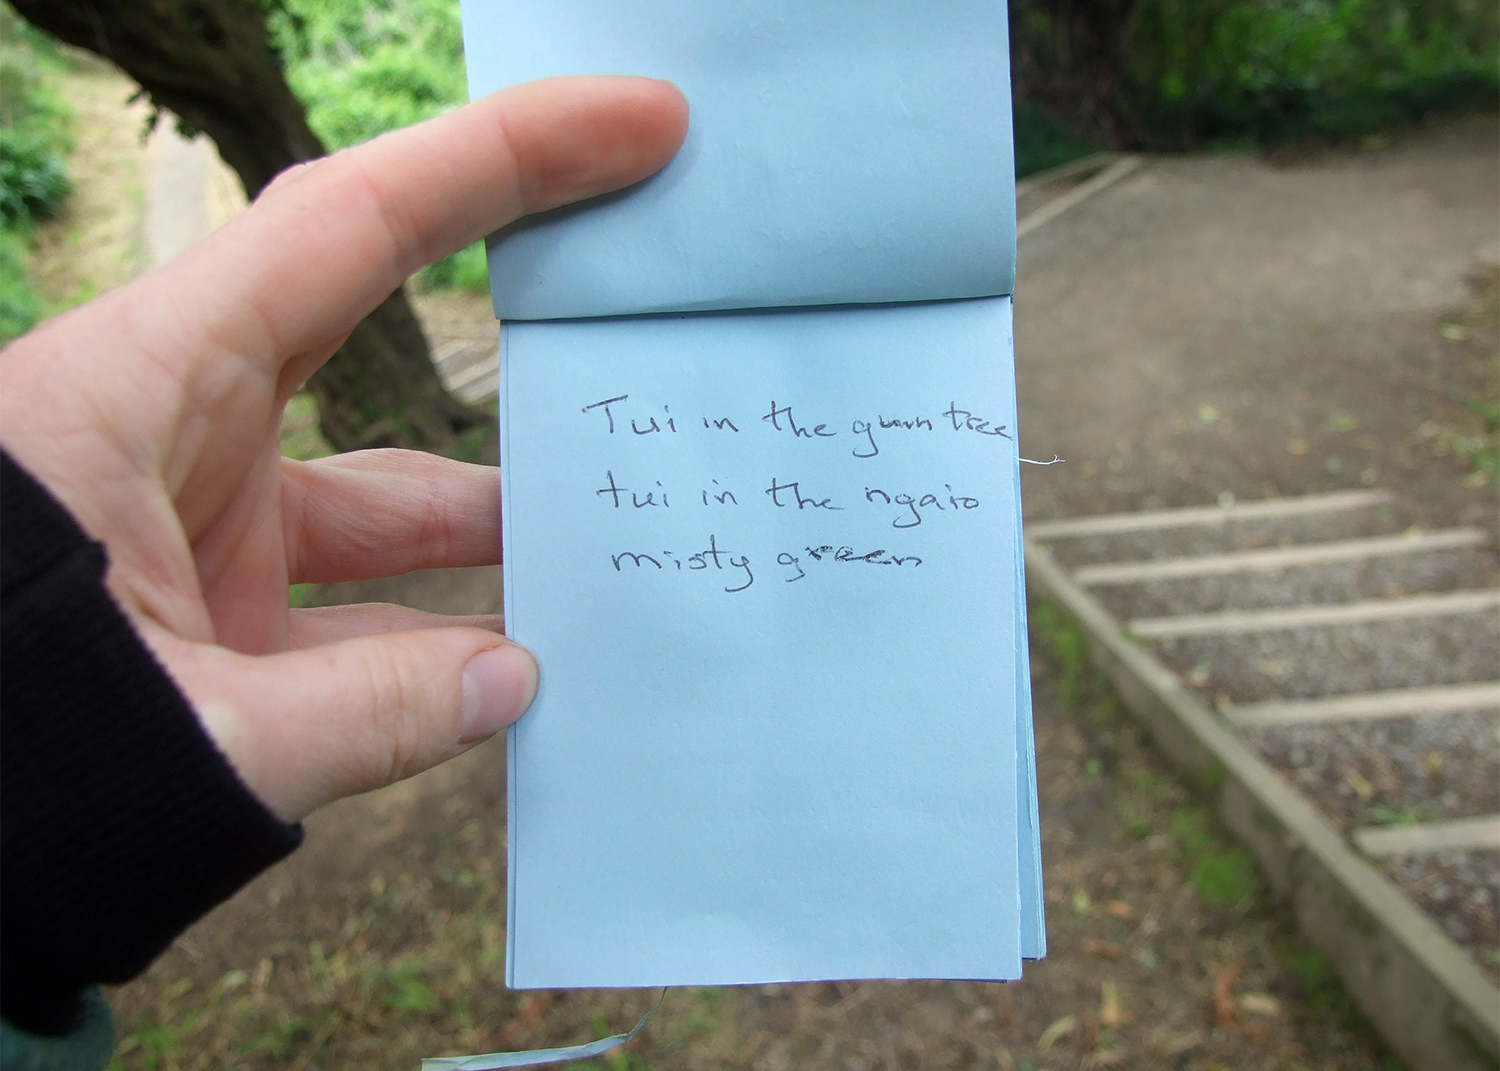 Tui in the gum tree
tui in the ngaio
misty green